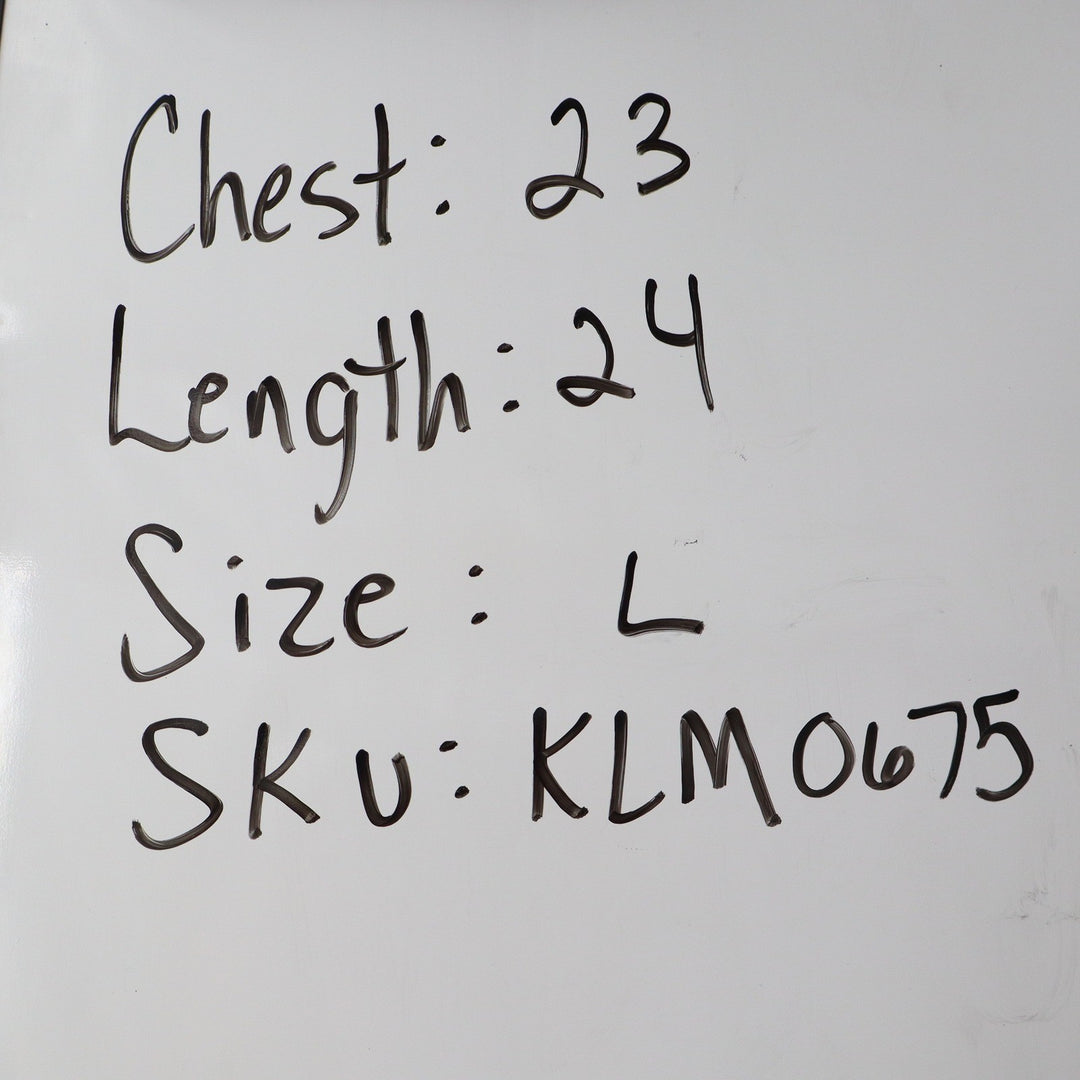 Chest: 23
Length: 24
Size: L
SKU: KLM0675